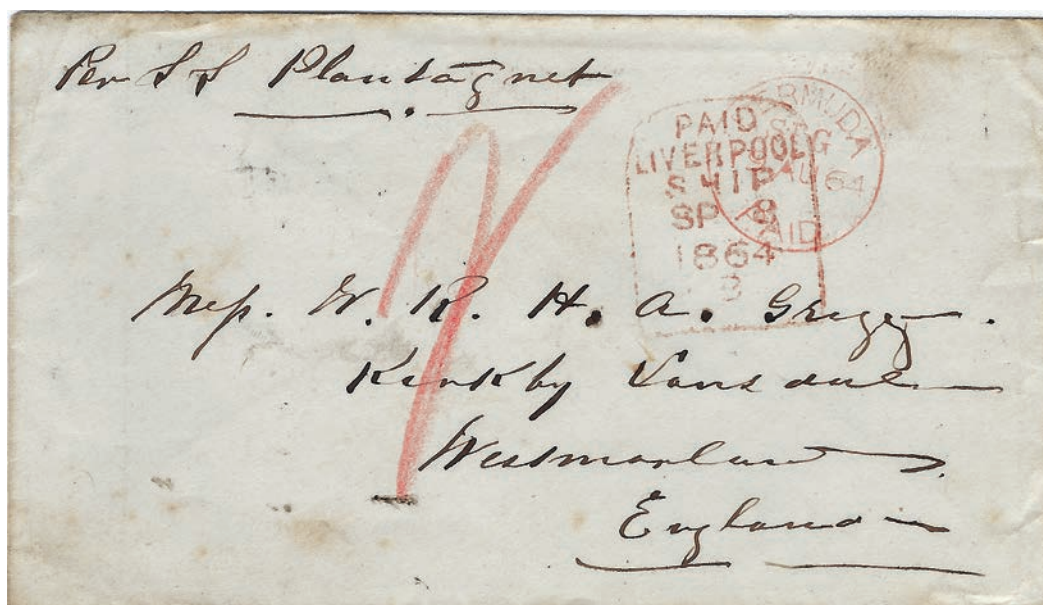 Per S S Plantagnet
PAID
LIVERPOOL
SHIP
SP 8
1864
BERMUDA
AU 64
PAID
Mess. W. R. H. A. Gregg.
Kirkby Lonsdale
Westmorland.
England